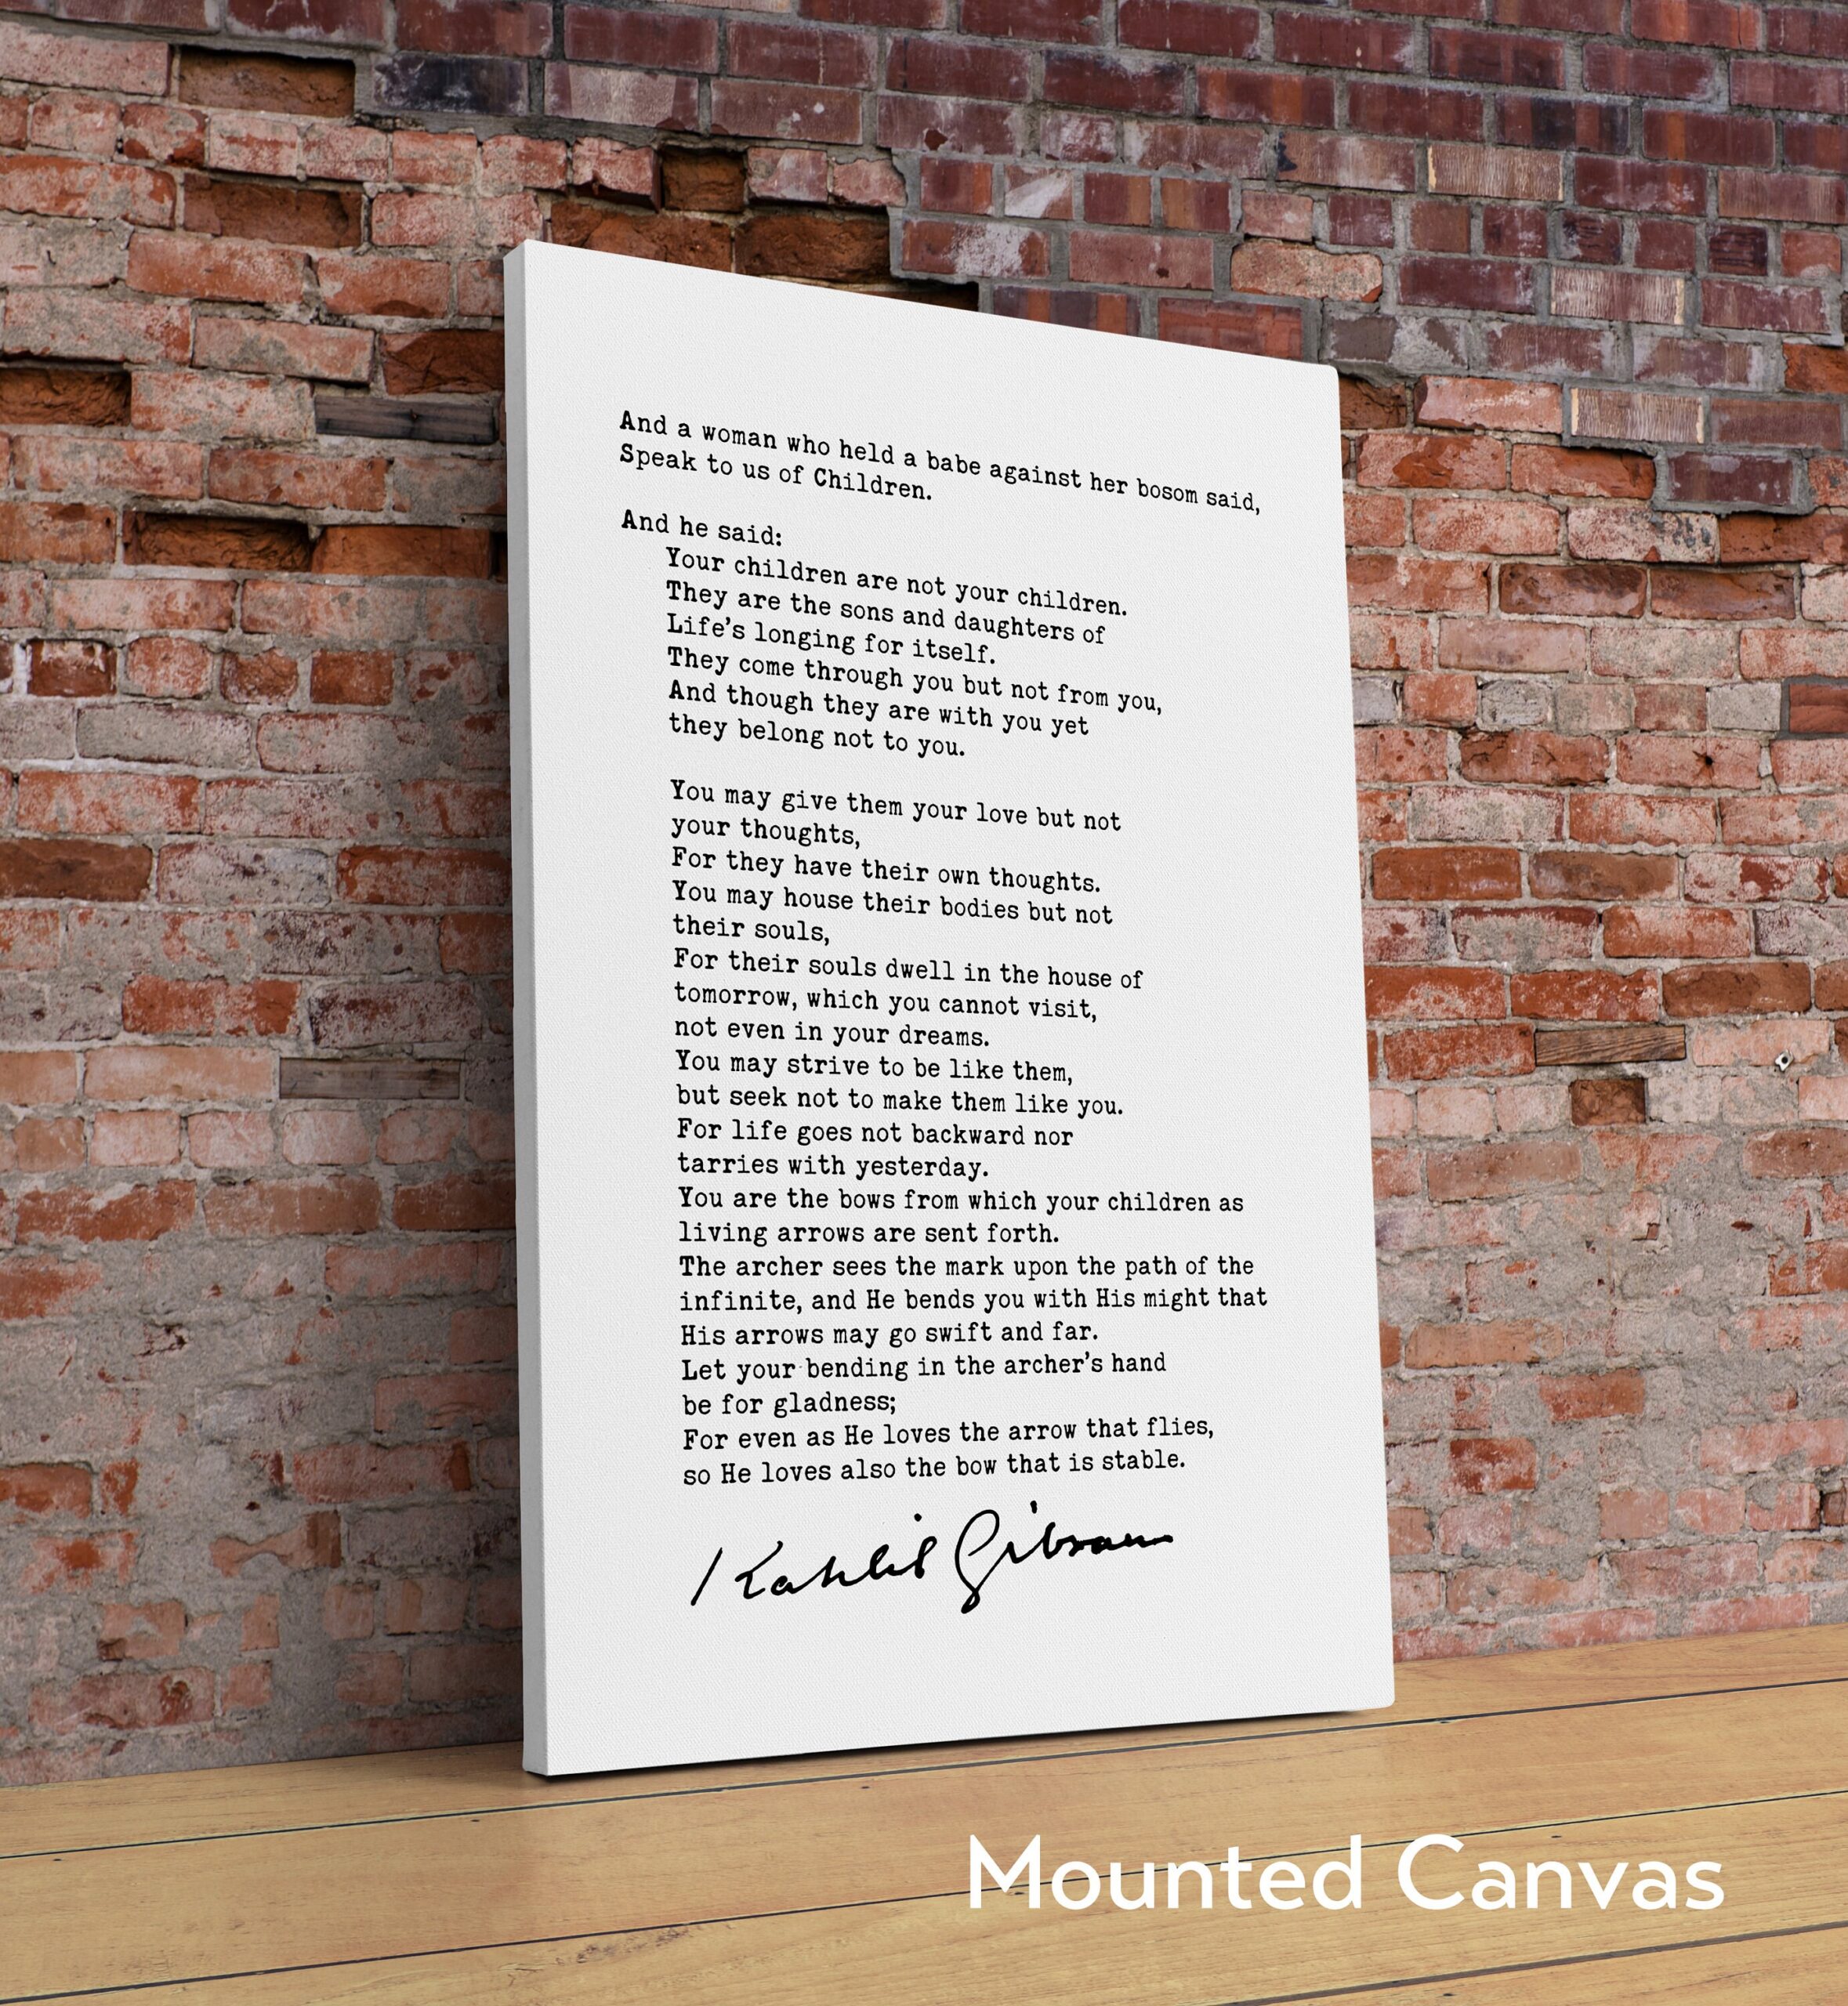 And a woman who held a babe against her bosom said,
Speak to us of Children.
And he said:
Your children are not your children.
They are the sons and daughters of
Life’s longing for itself.
They come through you but not from you,
And though they are with you yet
they belong not to you.
You may give them your love but not
your thoughts,
For they have their own thoughts.
You may house their bodies but not
their souls,
For their souls dwell in the house of
tomorrow, which you cannot visit,
not even in your dreams.
You may strive to be like them,
but seek not to make them like you.
For life goes not backward nor
tarries with yesterday.
You are the bows from which your children as
living arrows are sent forth.
The archer sees the mark upon the path of the
infinite, and He bends you with His might that
His arrows may go swift and far.
Let your bending in the archer’s hand
be for gladness;
For even as He loves the arrow that flies,
so He loves also the bow that is stable.
Kahlil Gibran
Mounted Canvas